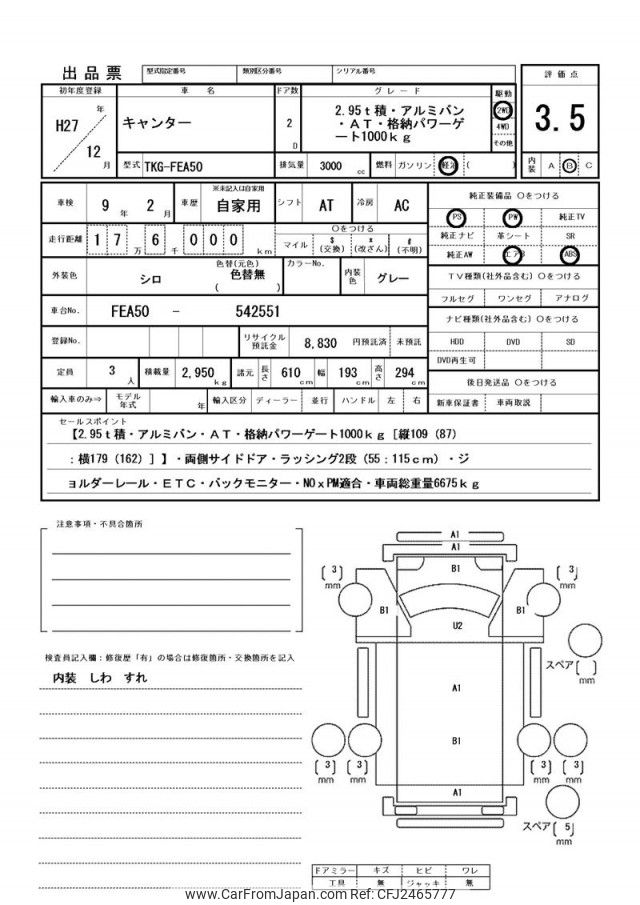 出品票
型式指定番号 類別区分番号 シリアル番号
評価点
3.5
内装 A B C
初年度登録 車名 ドア数 グレード 駆動
H27 年 12 月
キャンター
2 D
2.95t積・アルミバン
・AT・格納パワーゲ
ート1000kg
2WD
4WD
その他
型式 TKG-FEA50 排気量 3000 cc 燃料 ガソリン 軽油 ( )
車検 9年 2月 車歴 ※未記入は自家用 自家用 シフト AT 冷房 AC
走行距離 1 7 万 6 千 0 0 0 km
○をつける
マイル $(交換) *(改ざん) #(不明)
外装色 シロ 色替(元色) 色替無 ( ) カラーNo. 内装色 グレー
車台No. FEA50 - 542551
登録No. リサイクル預託金 8,830 円預託済 未預託
定員 3人 積載量 2,950 kg 諸元 長さ 610 cm 幅 193 cm 高さ 294 cm
輸入車のみ⇒ モデル年式 年 輸入区分 ディーラー 並行 ハンドル 左 右
純正装備品 ○をつける
PS PW 純正TV
純正ナビ 革シート SR
純正AW エアB ABS
TV種類(社外品含む) ○をつける
フルセグ ワンセグ アナログ
ナビ種類(社外品含む) ○をつける
HDD DVD SD
DVD再生可
後日発送品 ○をつける
新車保証書 車両取説
セールスポイント
【2.95t積・アルミバン・AT・格納パワーゲート1000kg［縦109（87）
：横179（162）］】・両側サイドドア・ラッシング2段（55：115cm）・ジ
ョルダーレール・ETC・バックモニター・NOxPM適合・車両総重量6675kg
注意事項・不具合箇所
検査員記入欄：修復歴「有」の場合は修復箇所・交換箇所を記入
内装 しわ すれ
A1
A1
B1
[ 3 ] mm
[ 3 ] mm
B1
B1
U2
スペア [ ] mm
A1
B1
[ 3 ] mm
[ 3 ] mm
[ 3 ] mm
[ 3 ] mm
A1
スペア [ 5 ] mm
ドアミラー キズ ヒビ ワレ
工具 無 ジャッキ 無
www.CarFromJapan.com Ref: CFJ2465777